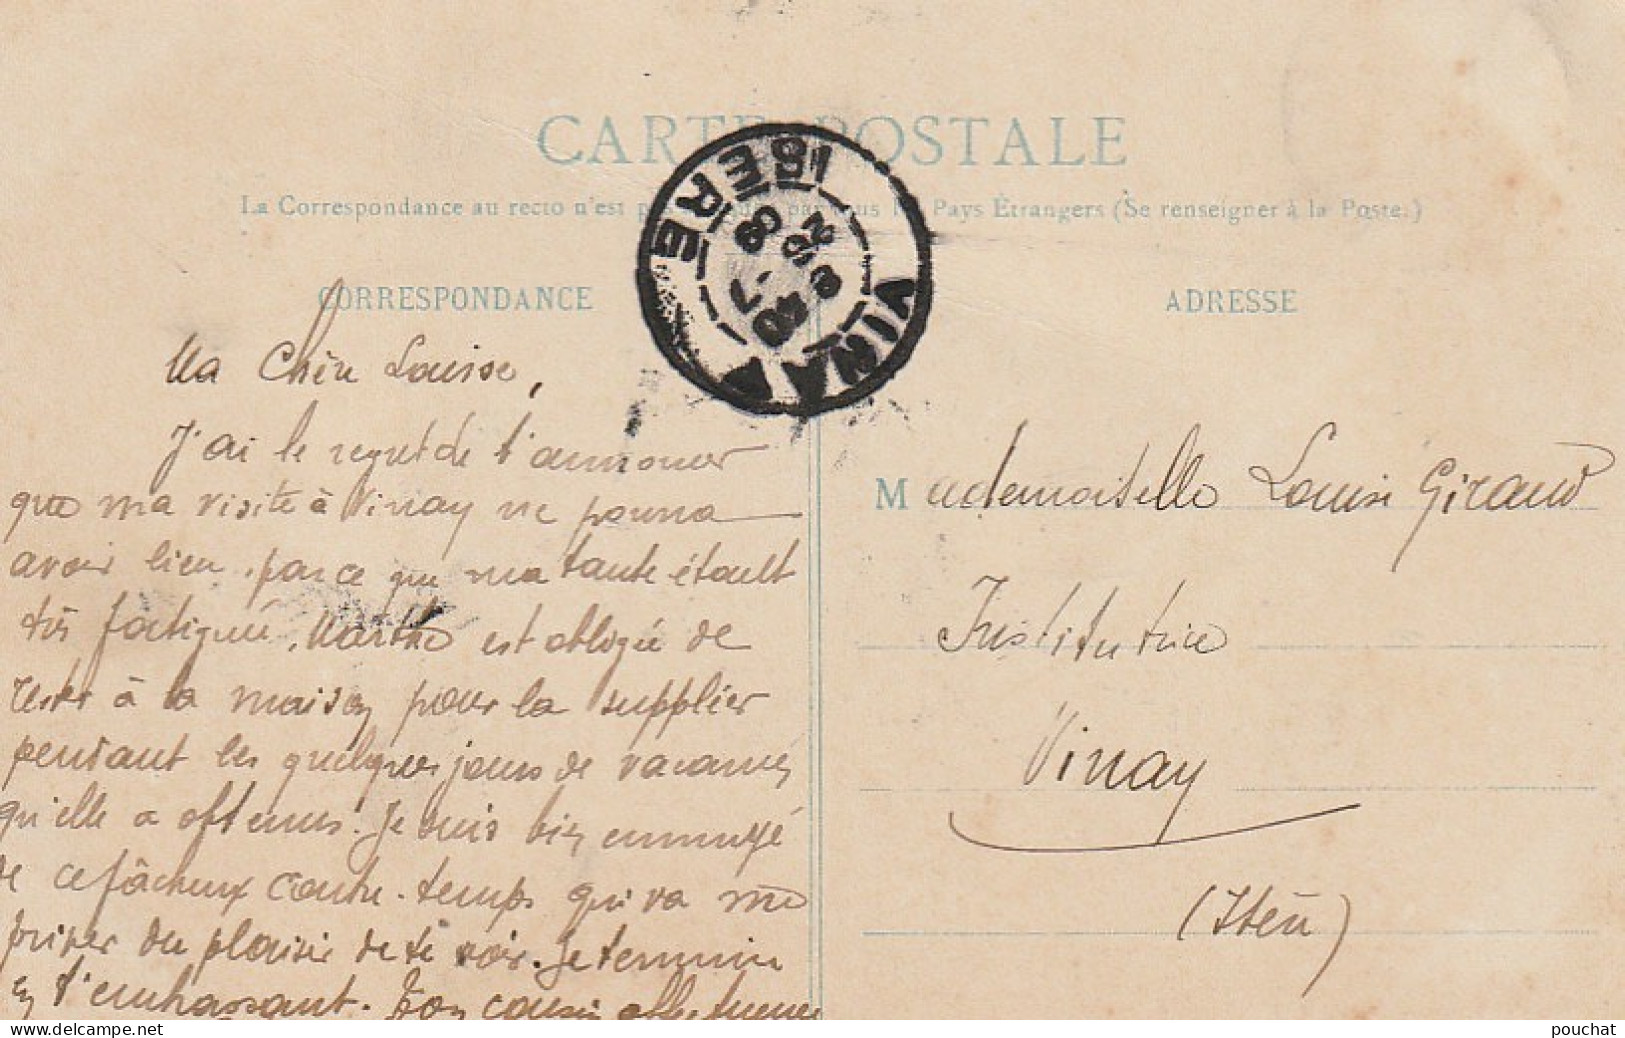 CARTE POSTALE
La Correspondance au recto n'est pas par tous les Pays Étrangers (Se renseigner à la Poste.)
CORRESPONDANCE
ADRESSE
VINAY
ISERE
Ma Chère Louise,
J'ai le regret de t'annoncer
que ma visite à Vinay ne pourra
avoir lieu, parce que ma tante étant
très fatiguée, Marthe est obligée de
rester à la maison pour la suppléer
pendant les quelques jours de vacances
qu'elle a obtenus. Je suis bien ennuyé
de ce fâcheux contre-temps qui va me
priver du plaisir de te voir. Je termine
en t'embrassant. Ton cousin affectueux
Mademoiselle Louise Giraud
Institutrice
Vinay
(Isère)
pouchat
www.delcampe.net